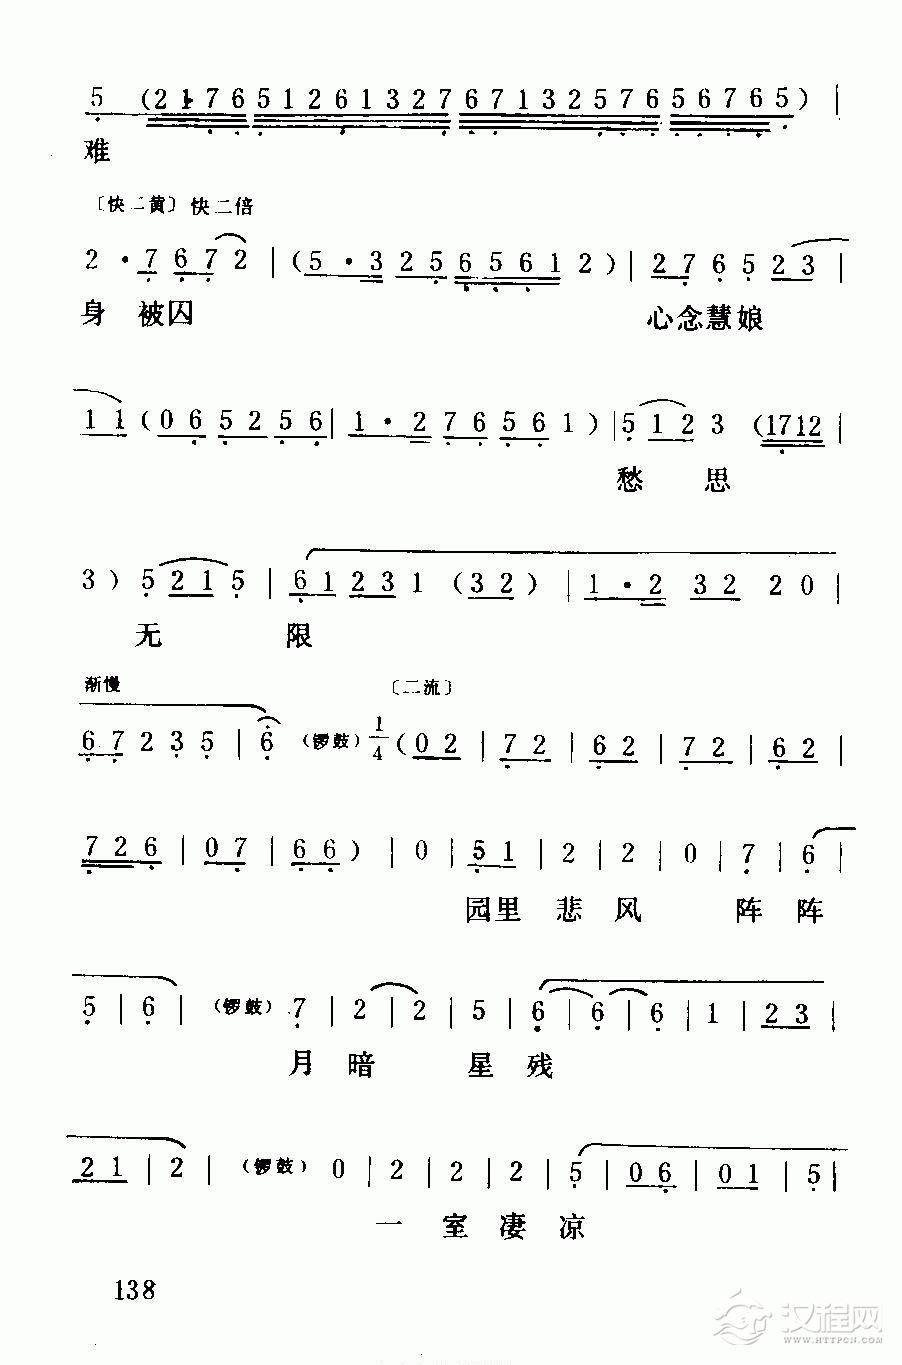 5 (2176 51261327 67132576 56765) |
难
〔快二黄〕快二倍
2 · 7 6 7 2 | (5 · 3 2 5 6 5 6 1 2) | 2 7 6 5 2 3 |
身 被囚 心念慧娘
1 1 (0 6 5 2 5 6 | 1 · 2 7 6 5 6 1) | 5 1 2 3 (1712 |
愁 思
3) 5 2 1 5 | 6 1 2 3 1 (3 2) | 1 · 2 3 2 2 0 |
无 限
渐慢 〔二流〕
6 7 2 3 5 | 6 (锣鼓) 1/4 (0 2 | 7 2 | 6 2 | 7 2 | 6 2 |
7 2 6 | 0 7 | 6 6) | 0 | 5 1 | 2 | 2 | 0 | 7 | 6 |
园里 悲 风 阵 阵
5 | 6 | (锣鼓) 7 | 2 | 2 | 5 | 6 | 6 | 6 | 1 | 2 3 |
月 暗 星 残
2 1 | 2 | (锣鼓) 0 | 2 | 2 | 2 | 5 | 0 6 | 0 1 | 5 |
一 室 凄 凉
138
汉程网
WWW.HTTPCN.COM